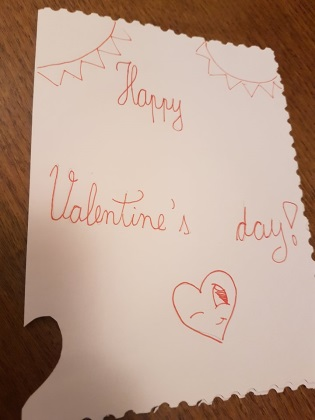 Happy
Valentine's day!